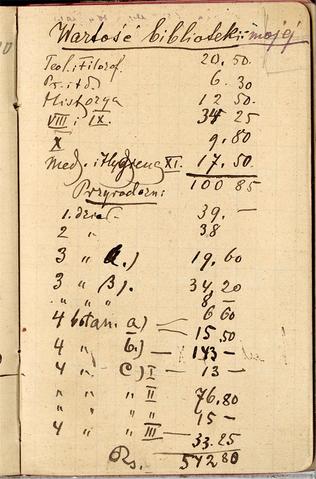 Wartość bibliotek: mojej
Teol. i Filozof. 20.50.
Pr. i t.d. 6.30
Historya 12 50.
VIII i IX. 34 25
X 9.80
Med. i Hygiena XI. 17.50.
100 85
Przyrodni:
1. dział. 39.—
2 " 38
3 " a.) 19.60
3 " β). 34,20
" " " 8 —
6 60
4 botan. a) — 15.50
4 " b) — 143 —
4 " c) I — 13 —
" " II 76.80
" " " 15 —
4 " " III — 33.25
Rs. 542 80